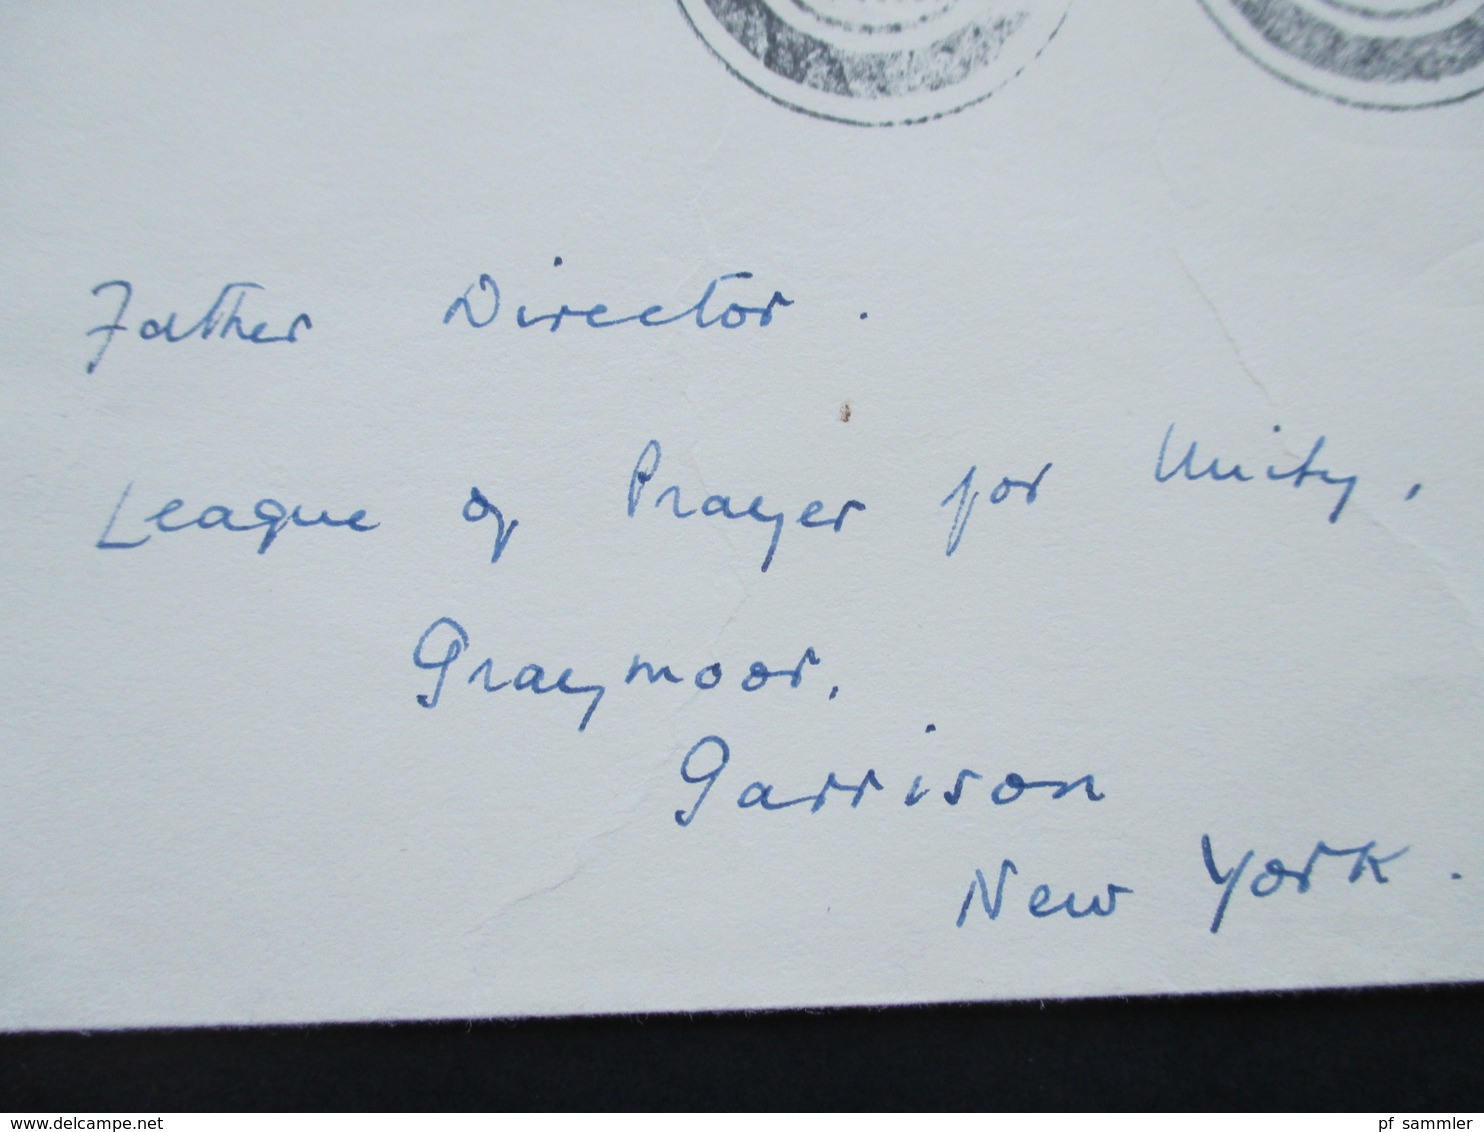 Father Director.
League of Prayer for Unity,
Graymoor,
Garrison
New York.
www.delcampe.net
pf_sammler